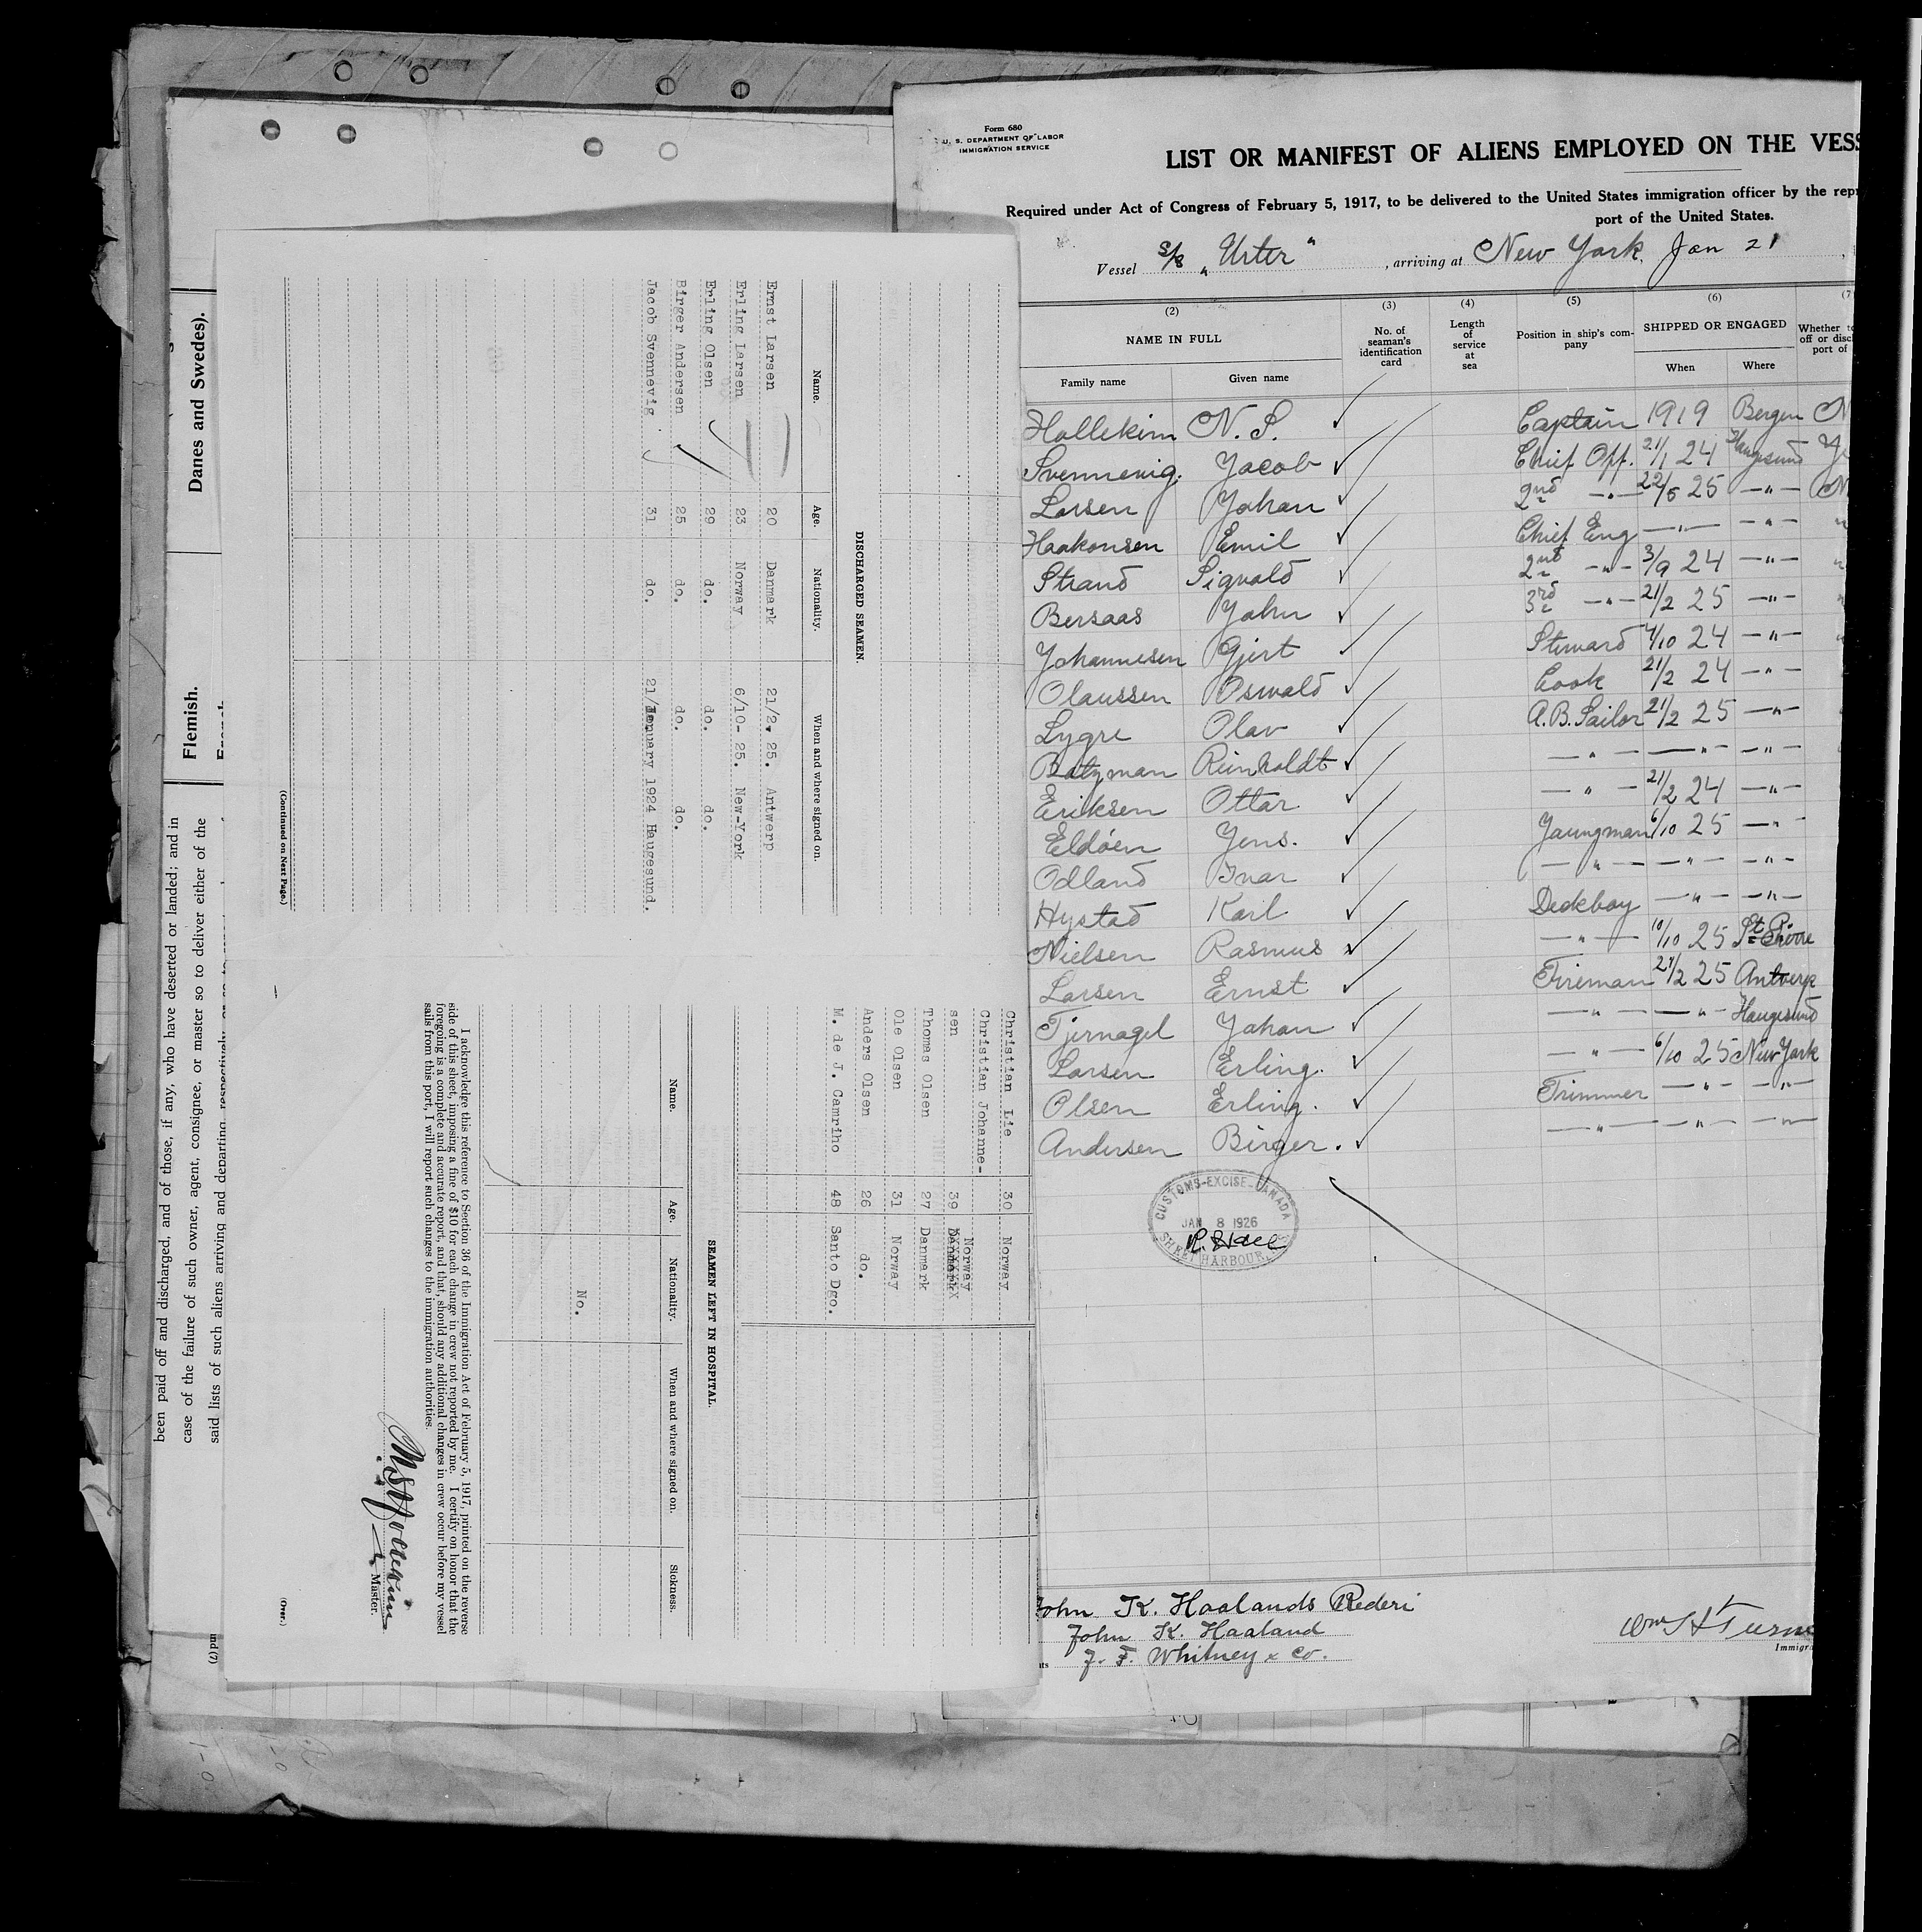 Form 680
U. S. DEPARTMENT OF LABOR
IMMIGRATION SERVICE
LIST OR MANIFEST OF ALIENS EMPLOYED ON THE VESS
Required under Act of Congress of February 5, 1917, to be delivered to the United States immigration officer by the repr
port of the United States.
Vessel S/S „Urter", arriving at New York, Jan 21
(2) (3) (4) (5) (6) (7
NAME IN FULL
Family name Given name
No. of seaman's identification card
Length of service at sea
Position in ship's company
SHIPPED OR ENGAGED
When Where
Whether t
off or disc
port of
Hollekim N. S. Captain 1919 Bergen N
Svennevig. Jacob Chief Off. 21/1 24 Haugesund Ye
Larsen Johan 2nd —"— 22/5 25 —"—
Haakonsen Emil Chief Eng —"— —"—
Strand Sigvald 2nd —"— 3/9 24 —"—
Bersaas John 3rd —"— 21/2 25 —"—
Johannesen Gjert Steward 4/10 24 —"—
Olaussen Oswald Cook 21/2 24 —"—
Lygre Olav A.B. Sailor 21/2 25 —"—
Batzman Reinholdt —"— —"— —"—
Eriksen Ottar —"— 21/2 24 —"—
Eldóen Jens. Youngman 6/10 25 —"—
Odland Ivar —"— —"— —"—
Hystad Karl Deckboy —"— —"—
Nielsen Rasmus —"— 10/10 25 St. Pierre
Larsen Ernst Fireman 21/2 25 Antwerp
Tjernagel Johan —"— —"— Haugesund
Larsen Erling. —"— 6/10 25 New York
Olsen Erling. Trimmer —"— —"—
Andersen Birger. —"— —"— —"—
CUSTOMS-EXCISE-CANADA
JAN 8 1926
HARBOUR
John K. Haalands Rederi
John K. Haaland
J. F. Whitney & Co.
Wm H Turne
Immigra
Danes and Swedes).
Flemish.
been paid off and discharged, and of those, if any, who have deserted or landed; and in
case of the failure of such owner, agent, consignee, or master so to deliver either of the
said lists of such aliens arriving and departing, respectively,
Christian Lie 30 Norway
Christian Johanne-
sen 39 Norway
Thomas Olsen 27 Danmark
Ole Olsen 31 Norway
Anders Olsen 26 do.
M. de J. Camriho 48 Santo Dgo.
DISCHARGED SEAMEN.
Name. Age. Nationality. When and where signed on.
Ernst Larsen 20 Danmark 21/2. 25. Antwerp
Erling Larsen 23 Norway 6/10- 25. New-York
Erling Olsen 29 do. do. do.
Birger Andersen 25 do. do. do.
Jacob Svennevig 31 do. 21/January 1924 Haugesund.
(Continued on Next Page.)
SEAMEN LEFT IN HOSPITAL.
Name. Age. Nationality. When and where signed on. Sickness.
No.
I acknowledge this reference to Section 36 of the Immigration Act of February 5, 1917, printed on the reverse
side of this sheet, imposing a fine of $10 for each change in crew not reported by me. I certify on honor that the
foregoing is a complete and accurate report, and that, should any additional changes in crew occur before my vessel
sails from this port, I will report such changes to the immigration authorities.
N S Hollekim
Master.
(Over.)